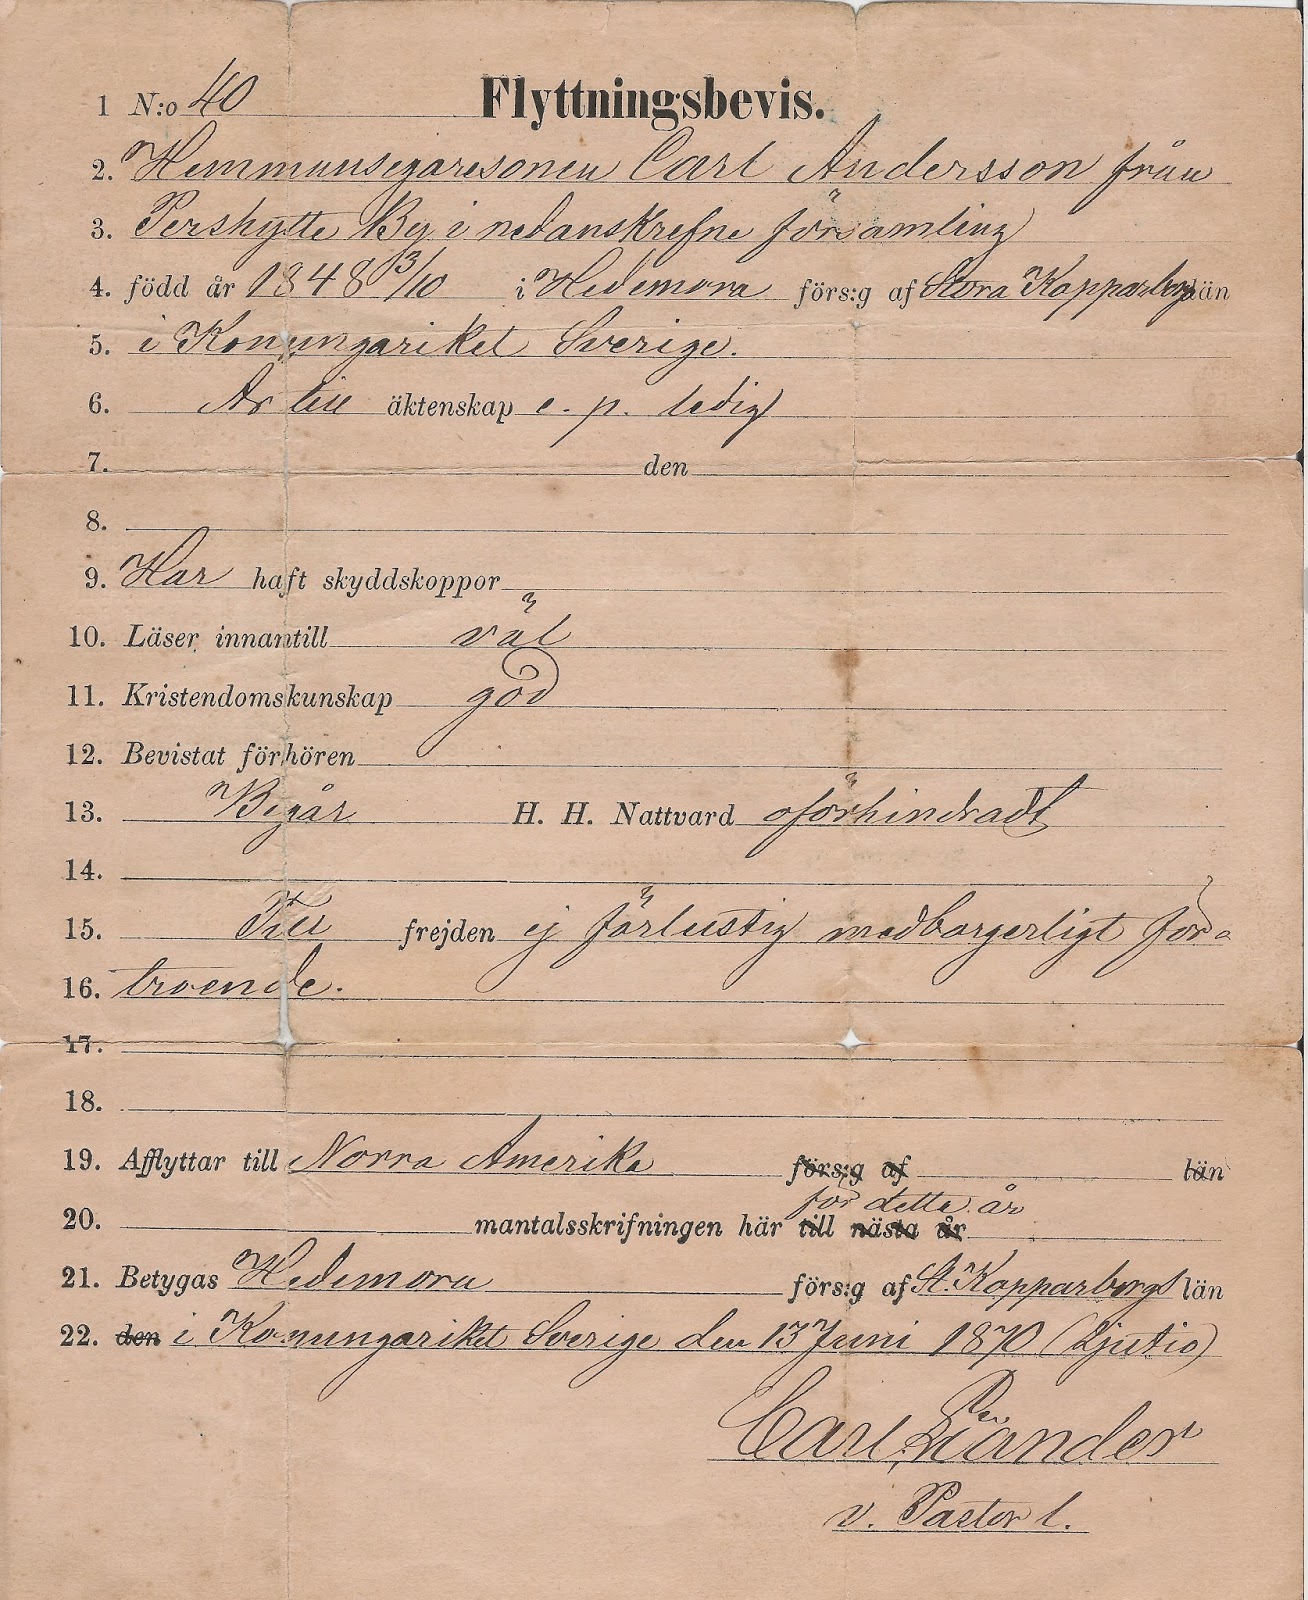 1 N:o 40 Flyttningsbevis.
2. Hemmansegaresonen Carl Andersson från
3. Pershytte By i nedanskrefne församling
4. född år 1848 13/10 i Hedemora förs:g af Stora Kopparbergs län
5. i Konungariket Sverige.
6. Är till äktenskap e. p. ledig
7. den
8.
9. Har haft skyddskoppor
10. Läser innantill väl
11. Kristendomskunskap god
12. Bevistat förhören
13. Begår H. H. Nattvard oförhindradt
14.
15. Till frejden ej förlustig medborgerligt för-
16. troende.
17.
18.
19. Afflyttar till Norra Amerika förs:g af län
för detta år
20. mantalsskrifningen här till nästa år
21. Betygas Hedemora förs:g af St. Kopparbergs län
22. den i Konungariket Sverige den 13 Juni 1870 (Sjutio)
Carl
v. Pastor l.